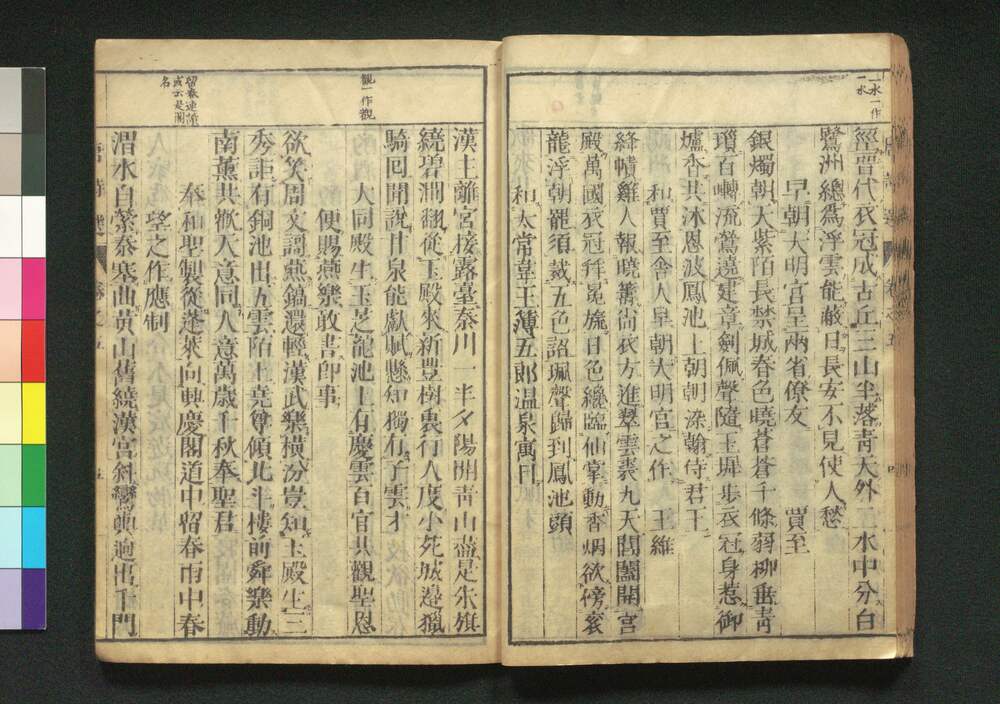 二水一作
一水
徑晋代衣冠成古丘三山半落青天外二水中分白
鷺洲總爲浮雲能蔽日長安不見使人愁
早朝大明宮呈兩省僚友 賈至
銀燭朝天紫陌長禁城春色曉蒼蒼千條弱柳垂青
瑣百囀流鶯遶建章劍佩聲隨玉墀步衣冠身惹御
爐香共沐恩波鳳池上朝朝染翰侍君王
和賈至舍人早朝大明宮之作 王維
絳幘雞人報曉籌尚衣方進翠雲裘九天閶闔開宮
殿萬國衣冠拜冕旒日色纔臨仙掌動香烟欲傍衮
龍浮朝罷須裁五色詔珮聲歸到鳳池頭
和太常韋主簿五郎温泉寓目
漢主離宮接露臺秦川一半夕陽開青山盡是朱旗
繞碧澗翻從玉殿來新豐樹裏行人度小苑城邊獵
騎回聞說甘泉能獻賦懸知獨有子雲才
觀一作
大同殿生玉芝龍池上有慶雲百官共觀聖恩
便賜燕樂敢書即事
欲笑周文謌燕鎬還輕漢武樂橫汾豈知玉殿生三
秀詎有銅池出五雲陌上堯尊傾北斗樓前舜樂動
南薰共歡天意同人意萬歲千秋奉聖君
留春連讀
或云是閣
名
奉和聖製從蓬萊向興慶閣道中留春雨中春
望之作應制
渭水自縈秦塞曲黃山舊繞漢宮斜鑾輿迥出千門
唐詩選 卷之五 五